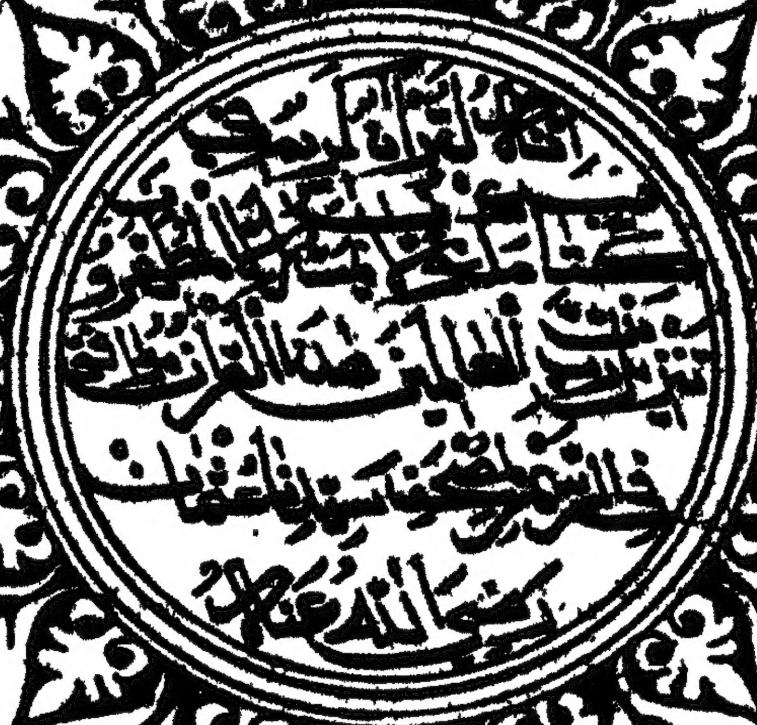 إنه لقرآن كريم في
كتاب مكنون لا يمسه إلا المطهرون
تنزيل من رب العالمين هذا القرآن
من مصحف سيدنا عثمان
رضي الله عنه